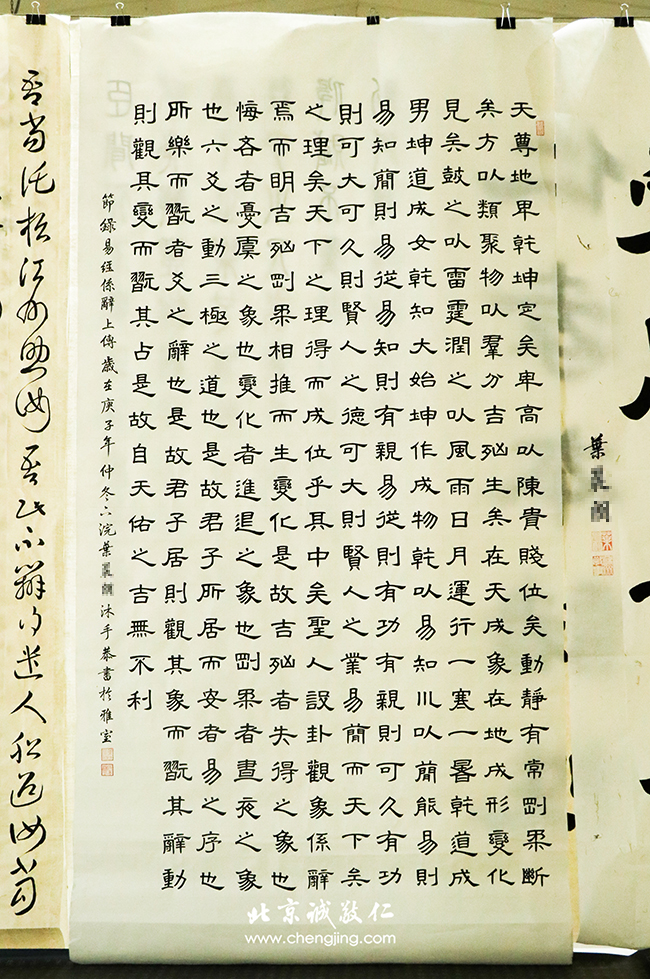 天尊地卑乾坤定矣卑高以陳貴賤位矣動靜有常剛柔斷
矣方以類聚物以羣分吉凶生矣在天成象在地成形變化
見矣鼓之以雷霆潤之以風雨日月運行一寒一暑乾道成
男坤道成女乾知大始坤作成物乾以易知川以簡能易則
易知簡則易從易知則有親易從則有功有親則可久有功
則可大可久則賢人之德可大則賢人之業易簡而天下矣
之理矣天下之理得而成位乎其中矣聖人設卦觀象係辭
焉而明吉凶剛柔相推而生變化是故吉凶者失得之象也
悔吝者憂虞之象也變化者進退之象也剛柔者晝夜之象
也六爻之動三極之道也是故君子所居而安者易之序也
所樂而翫者爻之辭也是故君子居則觀其象而翫其辭動
則觀其變而翫其占是故自天佑之吉無不利
節錄易經係辭上傳歲在庚子年仲冬六浣葉 沐手恭書於雅室
葉
北京诚敬仁
www.chengjing.com